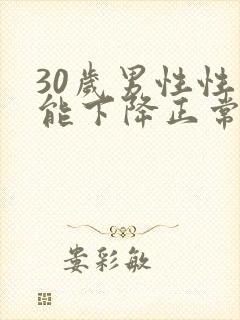 30歲男性性
能下降正常
娄彩敏